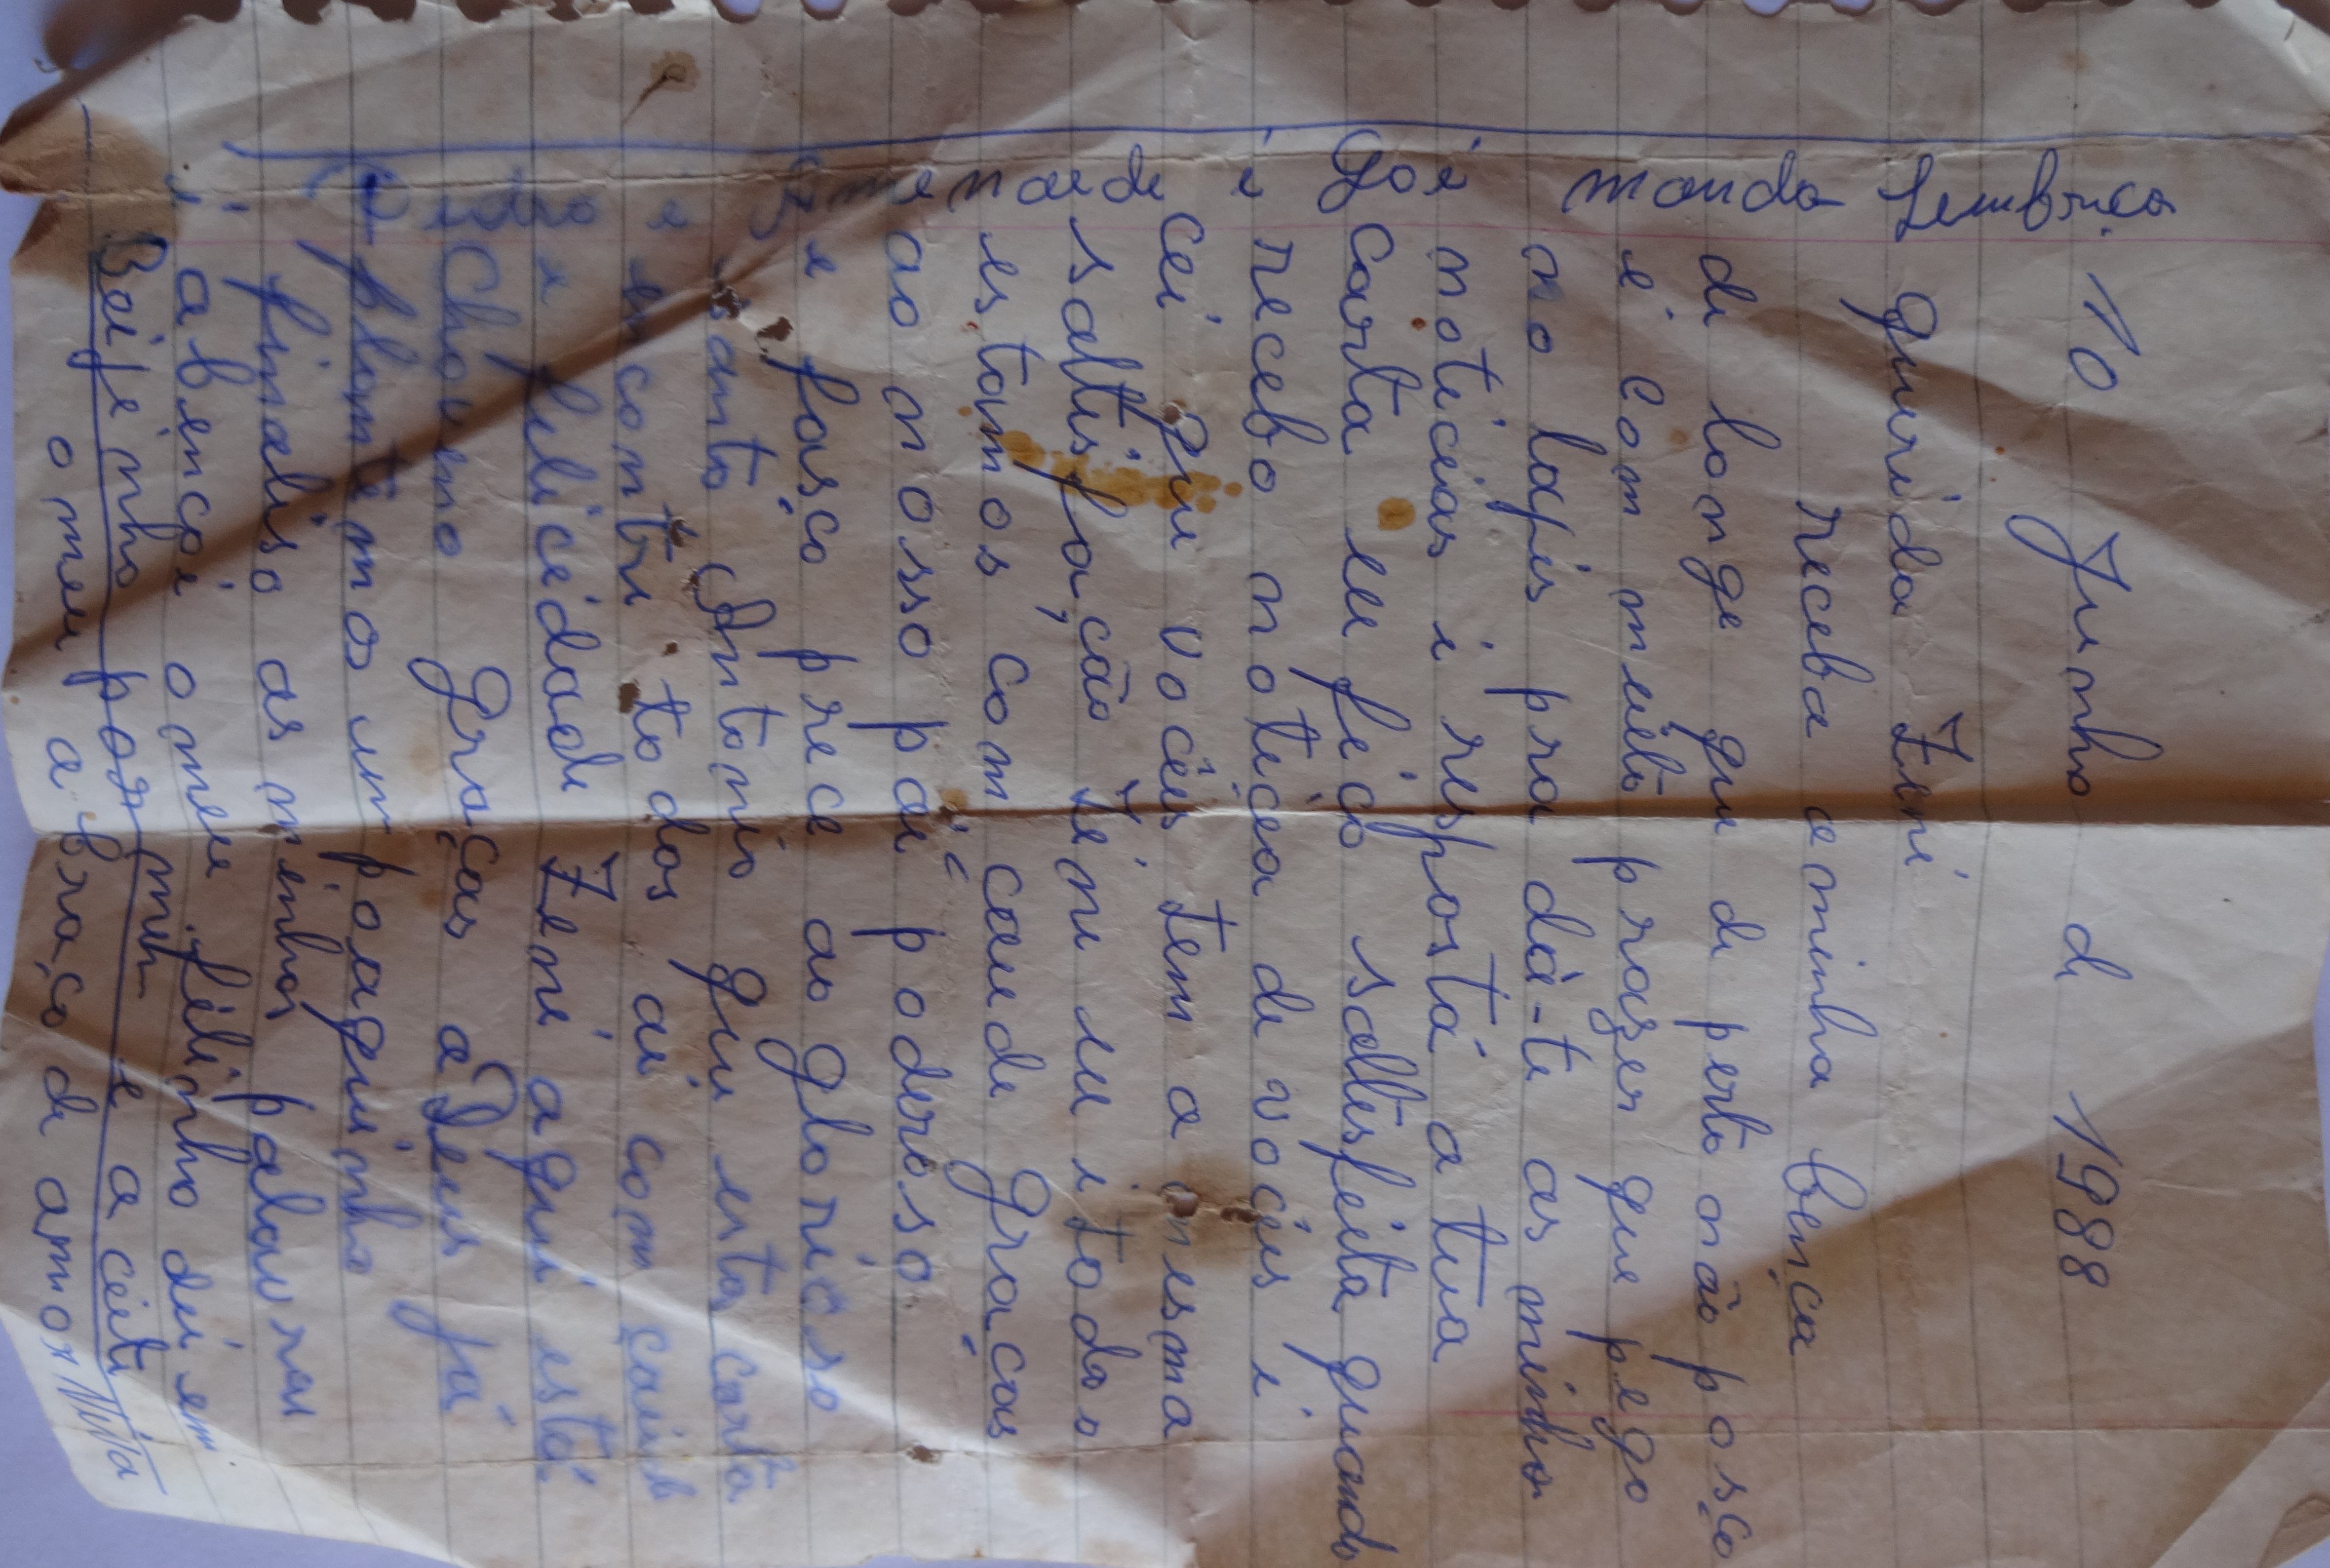 10 Junho de 1988
querida Zeni
receba a minha bença
de longe que de perto não posço
é com muito prazer que pego
no lapis pra dá-te as minhas
notícias i resposta a tua
carta eu fico sattisfeita quando
recebo notíçia de voçês i
cei que voçês tem a mesma
sattisfação Zeni eu e todos
estamos com caude graças
ao nosso pai poderoso
e fasço prece ao glorioso
santo Antonio que esta carta
e encontre todos ai com çaude
e felicidade Zeni aqui está
choveno graças a Deus já
plantemo um poaquinho
finaliso as minhas palavras
abençoi o meu filinho dei em
Beijinho por mim e aceite
o meu abraço de amor Mita
manda Lembrça